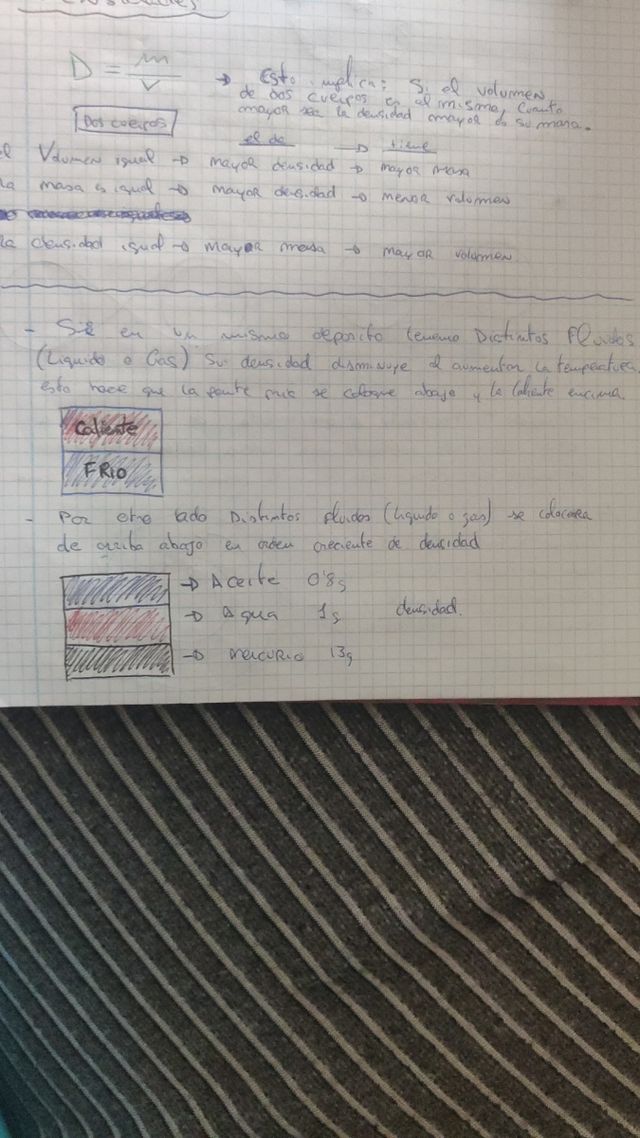 D = m
V
→ Esto implica: Si el volumen
de dos cuerpos es el mismo, cuanto
mayor sea la densidad mayor es su masa.
Dos cuerpos
el de → tiene
el Volumen igual → mayor densidad → mayor masa
la masa es igual → mayor densidad → menor volumen
la densidad igual → mayor masa → mayor volumen
- Si en un mismo deposito tenemo Distintos Fluidos
(Liquido o Gas) Su densidad disminuye al aumentar la temperatura.
esto hace que la parte fria se coloque abajo y la caliente encima.
Caliente
FRIO
- Por otro lado Distintos fluidos (liquido o gas) se colocara
de arriba abajo en orden creciente de densidad
→ Aceite 0'8g
→ Agua 1g densidad.
→ mercurio 13g